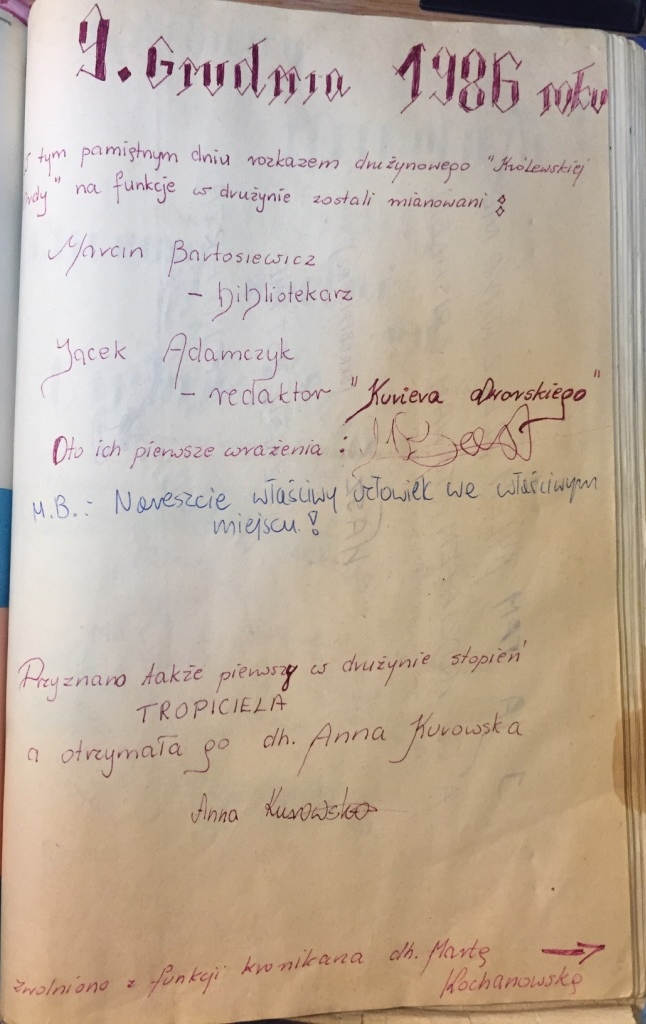 9. Grudnia 1986 roku
tym pamiętnym dniu rozkazem drużynowego "Królewskiej
" na funkcje w drużynie zostali mianowani :
Marcin Bartosiewicz
- bibliotekarz
Jacek Adamczyk
- redaktor "Kuriera dworskiego"
Oto ich pierwsze wrażenia :
M.B.: Nareszcie właściwy człowiek we właściwym
miejscu !
Przyznano także pierwszy w drużynie stopień
TROPICIELA
a otrzymała go dh. Anna Kurowska
Anna Kurowska
zwolniono z funkcji kronikarza dh. Martę
Kochanowską